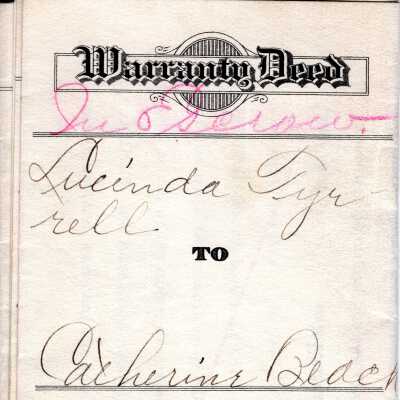 Warranty Deed
In Escrow.
Lucinda Tyr-
rell
TO
Catherine Beach